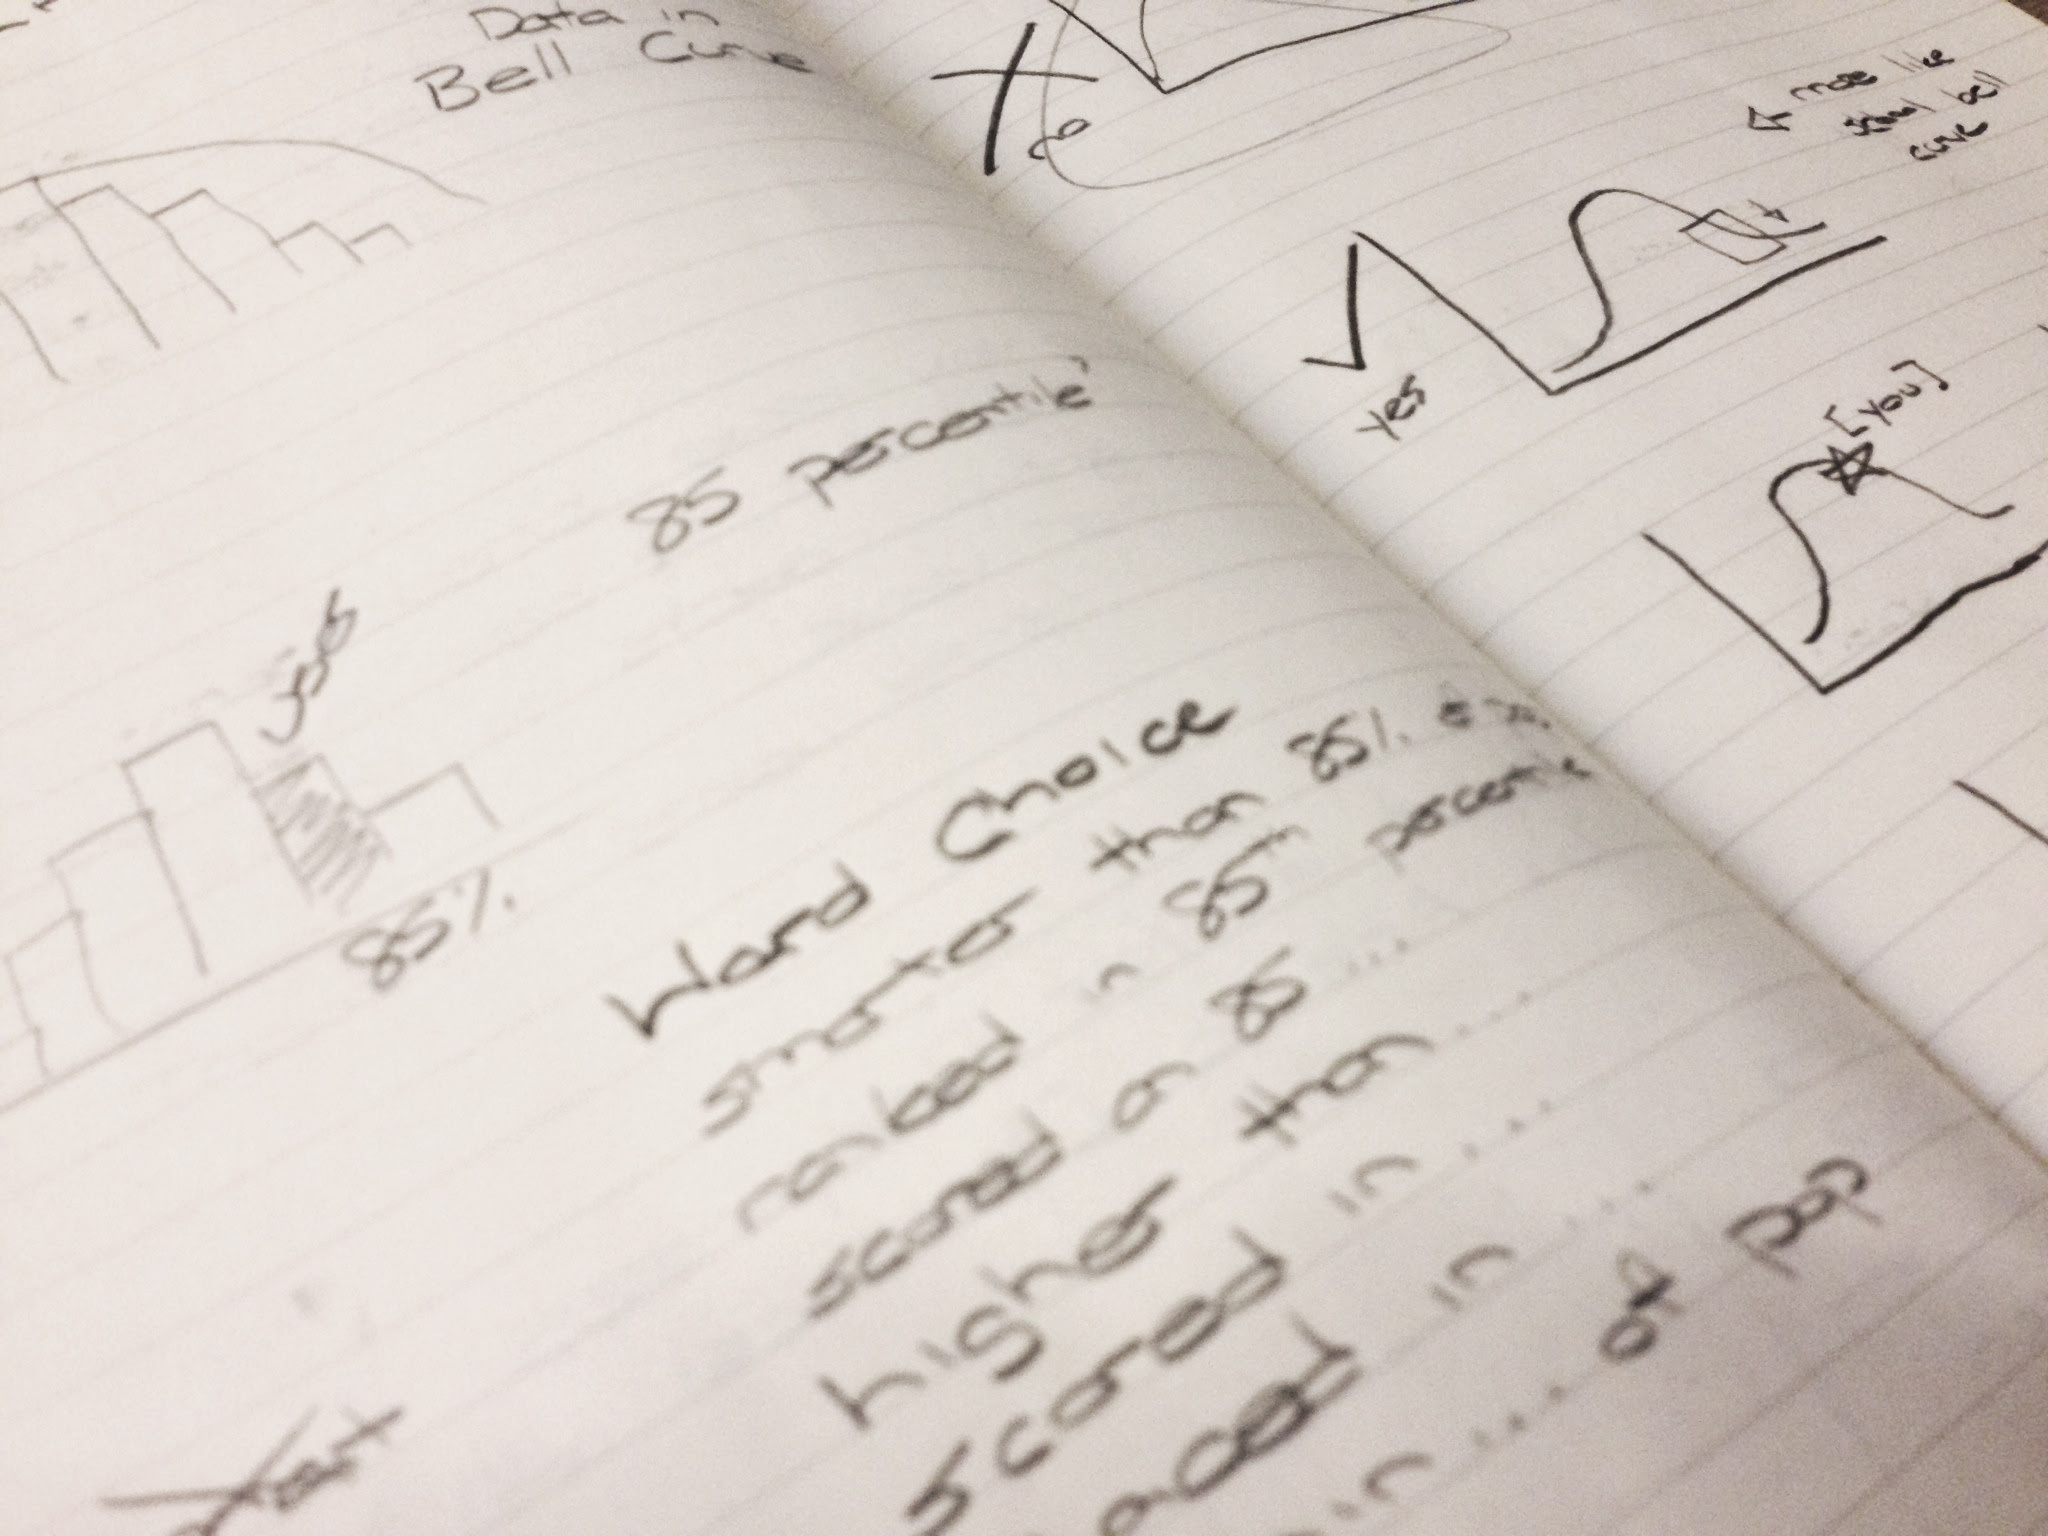 Data in
Bell Curve
85 percentile
85%
Word Choice
smarter than 85%
ranked in 85th percentile
scored an 85 ....
higher than ....
scored in ....
in ....
in .... of pop
no
← more like
school bell
curve
yes
[you]